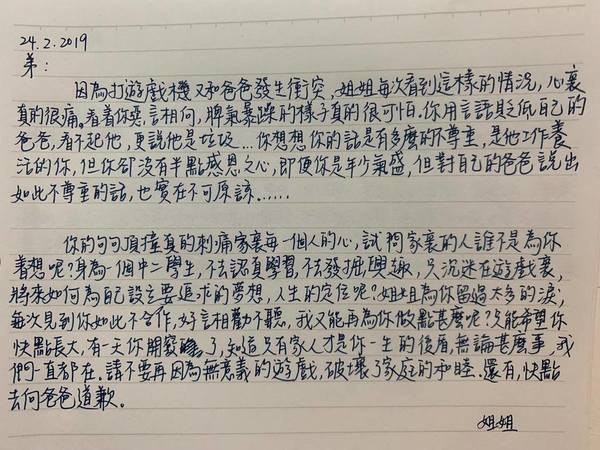 24.2.2019
弟：
因為打遊戲機又和爸爸發生衝突，姐姐每次看到這樣的情況，心裏
真的很痛。看着你惡言相向，脾氣暴躁的樣子真的很可怕。你用言語貶低自己的
爸爸，看不起他，更說他是垃圾…你想想你的話是有多麼的不尊重，是他工作養
活的你，但你卻沒有半點感恩之心，即便你是年少氣盛，但對自己的爸爸說出
如此不尊重的話，也實在不可原諒……
你的句句頂撞真的刺痛家裏每一個人的心，試問家裏的人誰不是為你
着想呢？身為一個中二學生，不去認真學習，不去發掘興趣，只沉迷在遊戲裏，
將來如何為自己設立要追求的夢想，人生的定位呢？姐姐為你留過太多的淚，
每次見到你如此不合作，好言相勸不聽，我又能再為你做點甚麼呢？只能希望你
快點長大，有一天你開竅了，知道只有家人才是你一生的後盾，無論甚麼事，我
們一直都在。請不要再因為無意義的遊戲，破壞了家庭的和睦。還有，快點
去向爸爸道歉。
姐姐